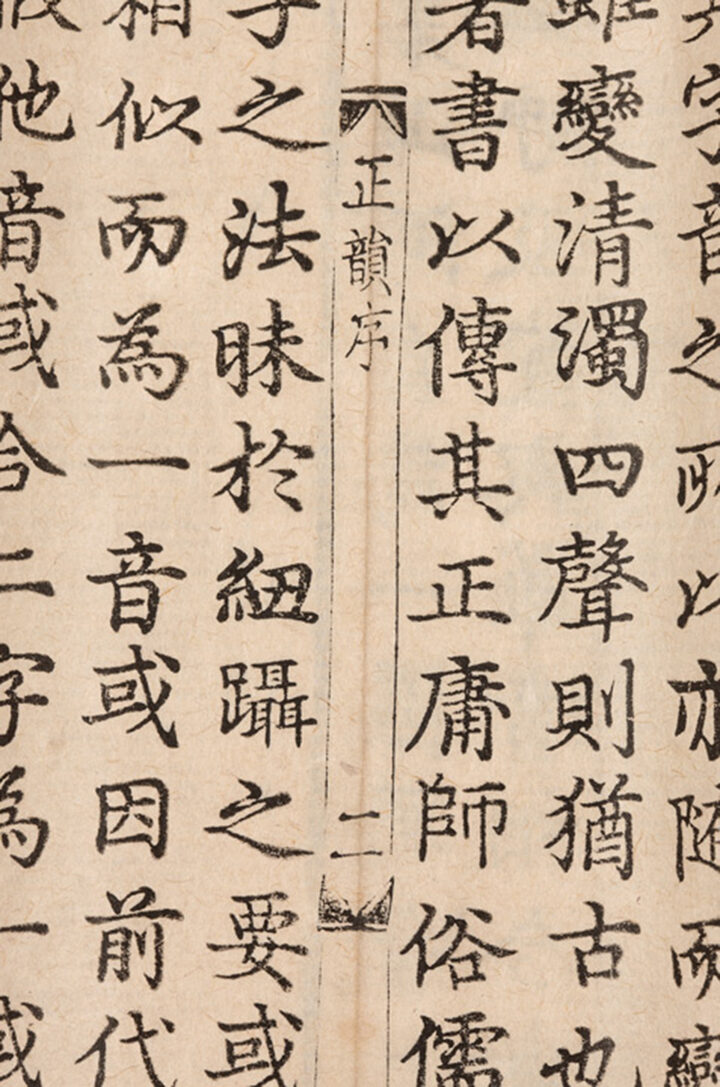 字音之所以亦随而變
雖變清濁四聲則猶古也
著書以傳其正庸師俗儒
正韻序 二
字之法昧於紐躡之要或
相似而為一音或因前代
假他音或合二字為一或